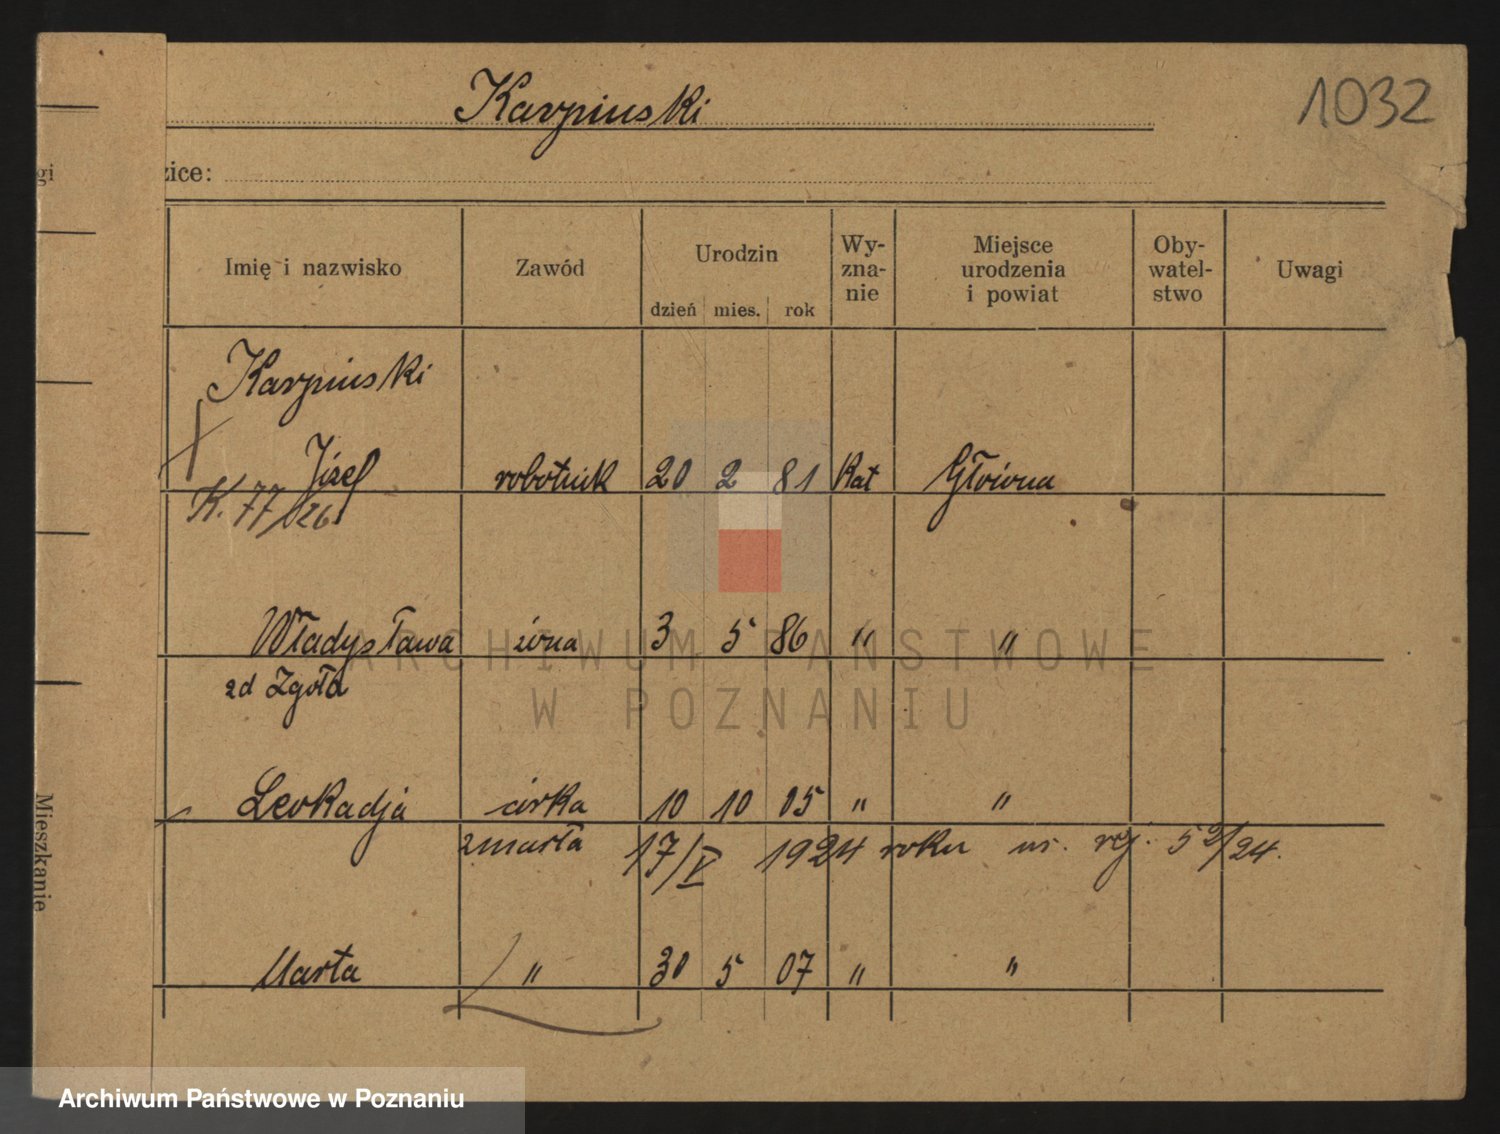 Karpinski
1032
gi
zice:
Imię i nazwisko
Zawód
Urodzin
dzień mies. rok
Wy-
zna-
nie
Miejsce
urodzenia
i powiat
Oby-
watel-
stwo
Uwagi
Karpinski
Józef robotnik 20 2 81 Kat Główna
K. 77/26
Władysława żona 3 5 86 " "
zd Zgoła
Leokadja córka 10 10 05 " "
zmarła 17/V 1924 roku nr. rej. 52/24.
Marta " 30 5 07 " "
Mieszkanie
ARCHIWUM PAŃSTWOWE
W POZNANIU
Archiwum Państwowe w Poznaniu